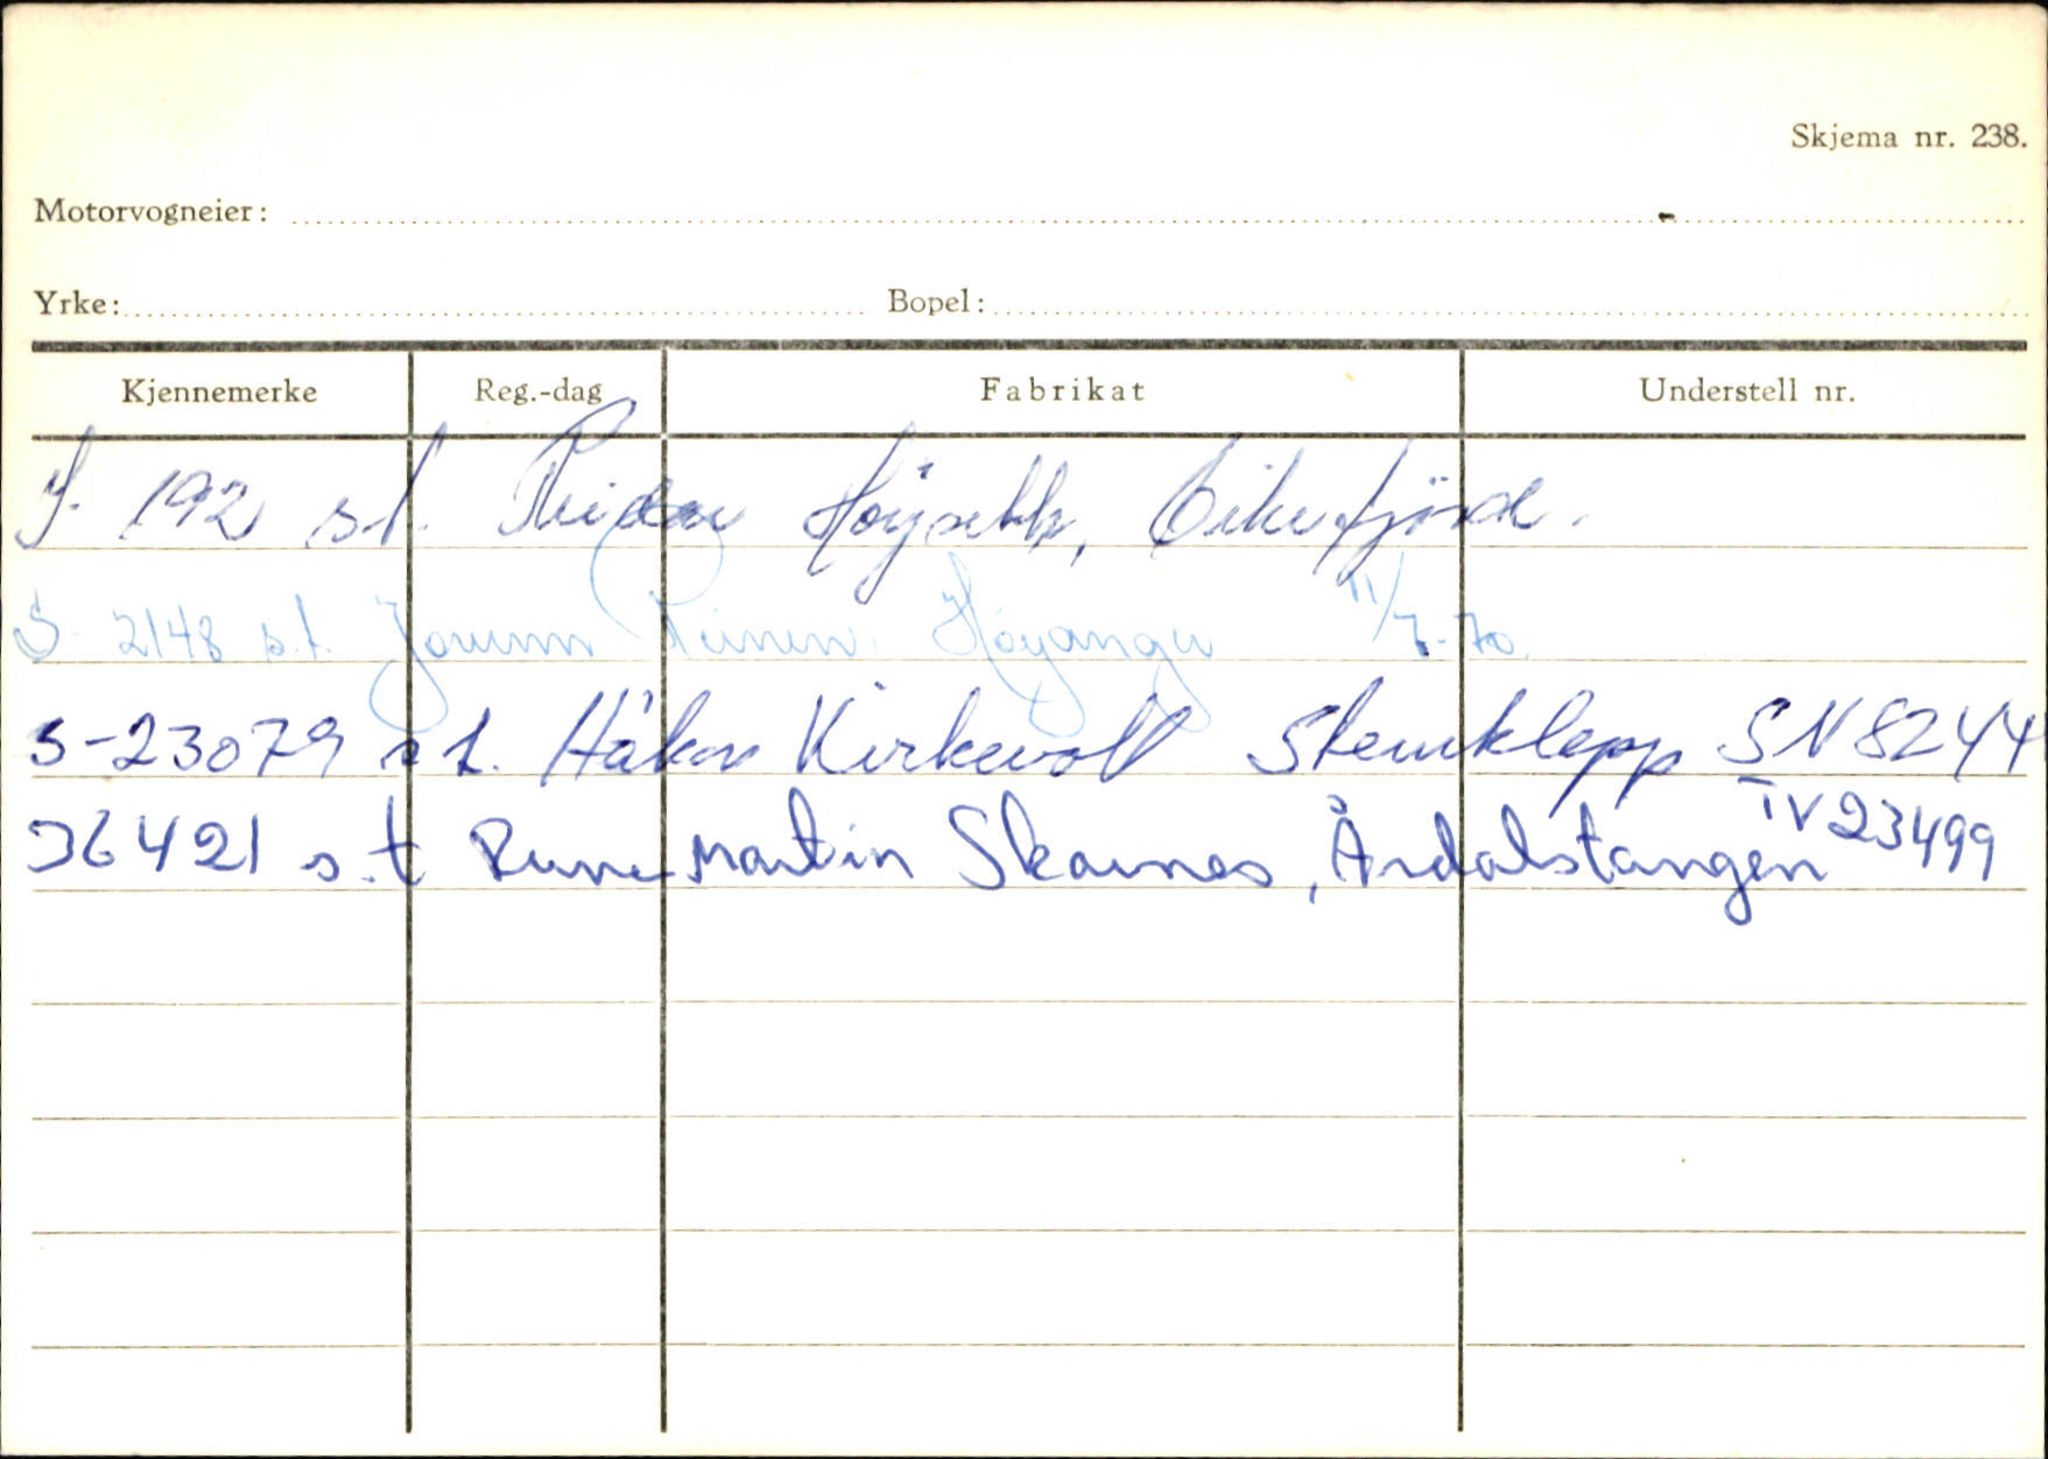 Skjema nr. 238.
Motorvogneier:
Yrke: Bopel:
Kjennemerke Reg.-dag Fabrikat Understell nr.
S. 192 s.t. Reidar Høyseth, Eikefjord.
S- 2148 s.t. Jorunn Reinen. Høyanger 11/7-70.
S-23079 s t. Håkon Kirkevoll Steinklepp SN8244
36421 s.t Rune Martin Skarnes, Årdalstangen IV23499